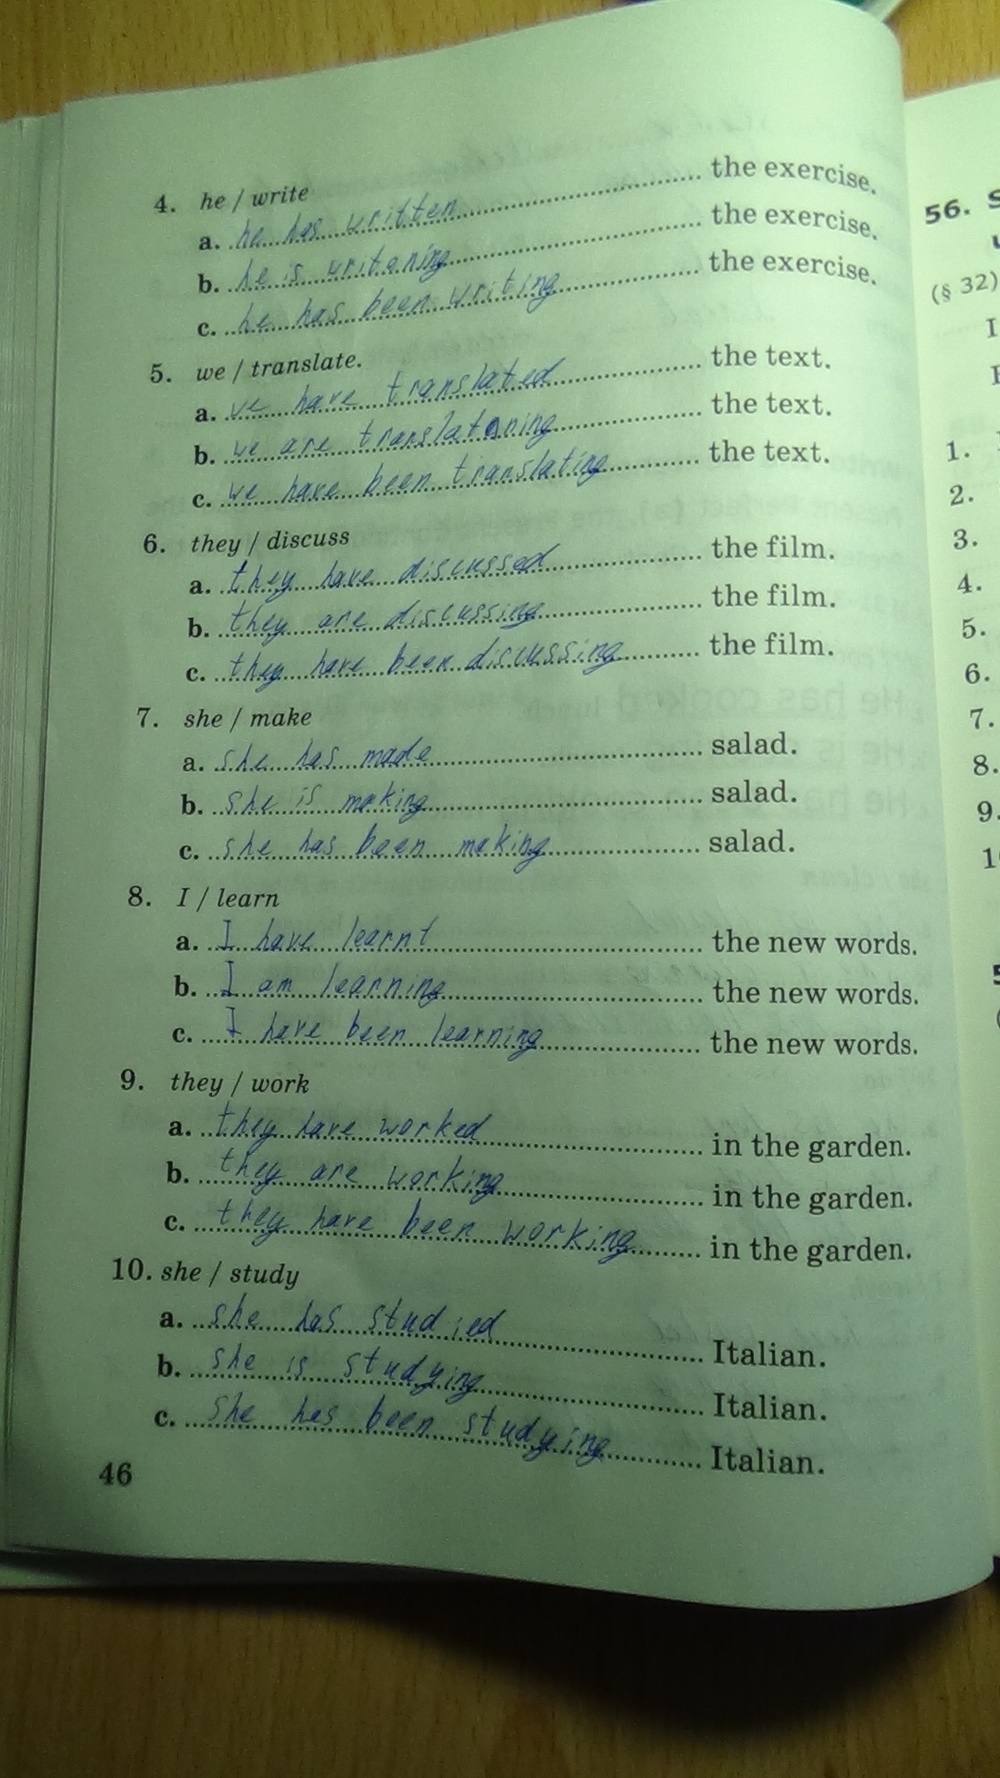 4. he / write
a. he has written the exercise.
b. he is writening the exercise.
c. he has been writing the exercise.
5. we / translate.
a. we have translated the text.
b. we are translatening the text.
c. we have been translating the text.
6. they / discuss
a. they have discussed the film.
b. they are discussing the film.
c. they have been discussing the film.
7. she / make
a. she has made salad.
b. she is making salad.
c. she has been making salad.
8. I / learn
a. I have learnt the new words.
b. I am learning the new words.
c. I have been learning the new words.
9. they / work
a. they have worked in the garden.
b. they are working in the garden.
c. they have been working in the garden.
10. she / study
a. she has studied Italian.
b. she is studying Italian.
c. she has been studying Italian.
46
56. S
(§ 32)
I
1.
2.
3.
4.
5.
6.
7.
8.
9.